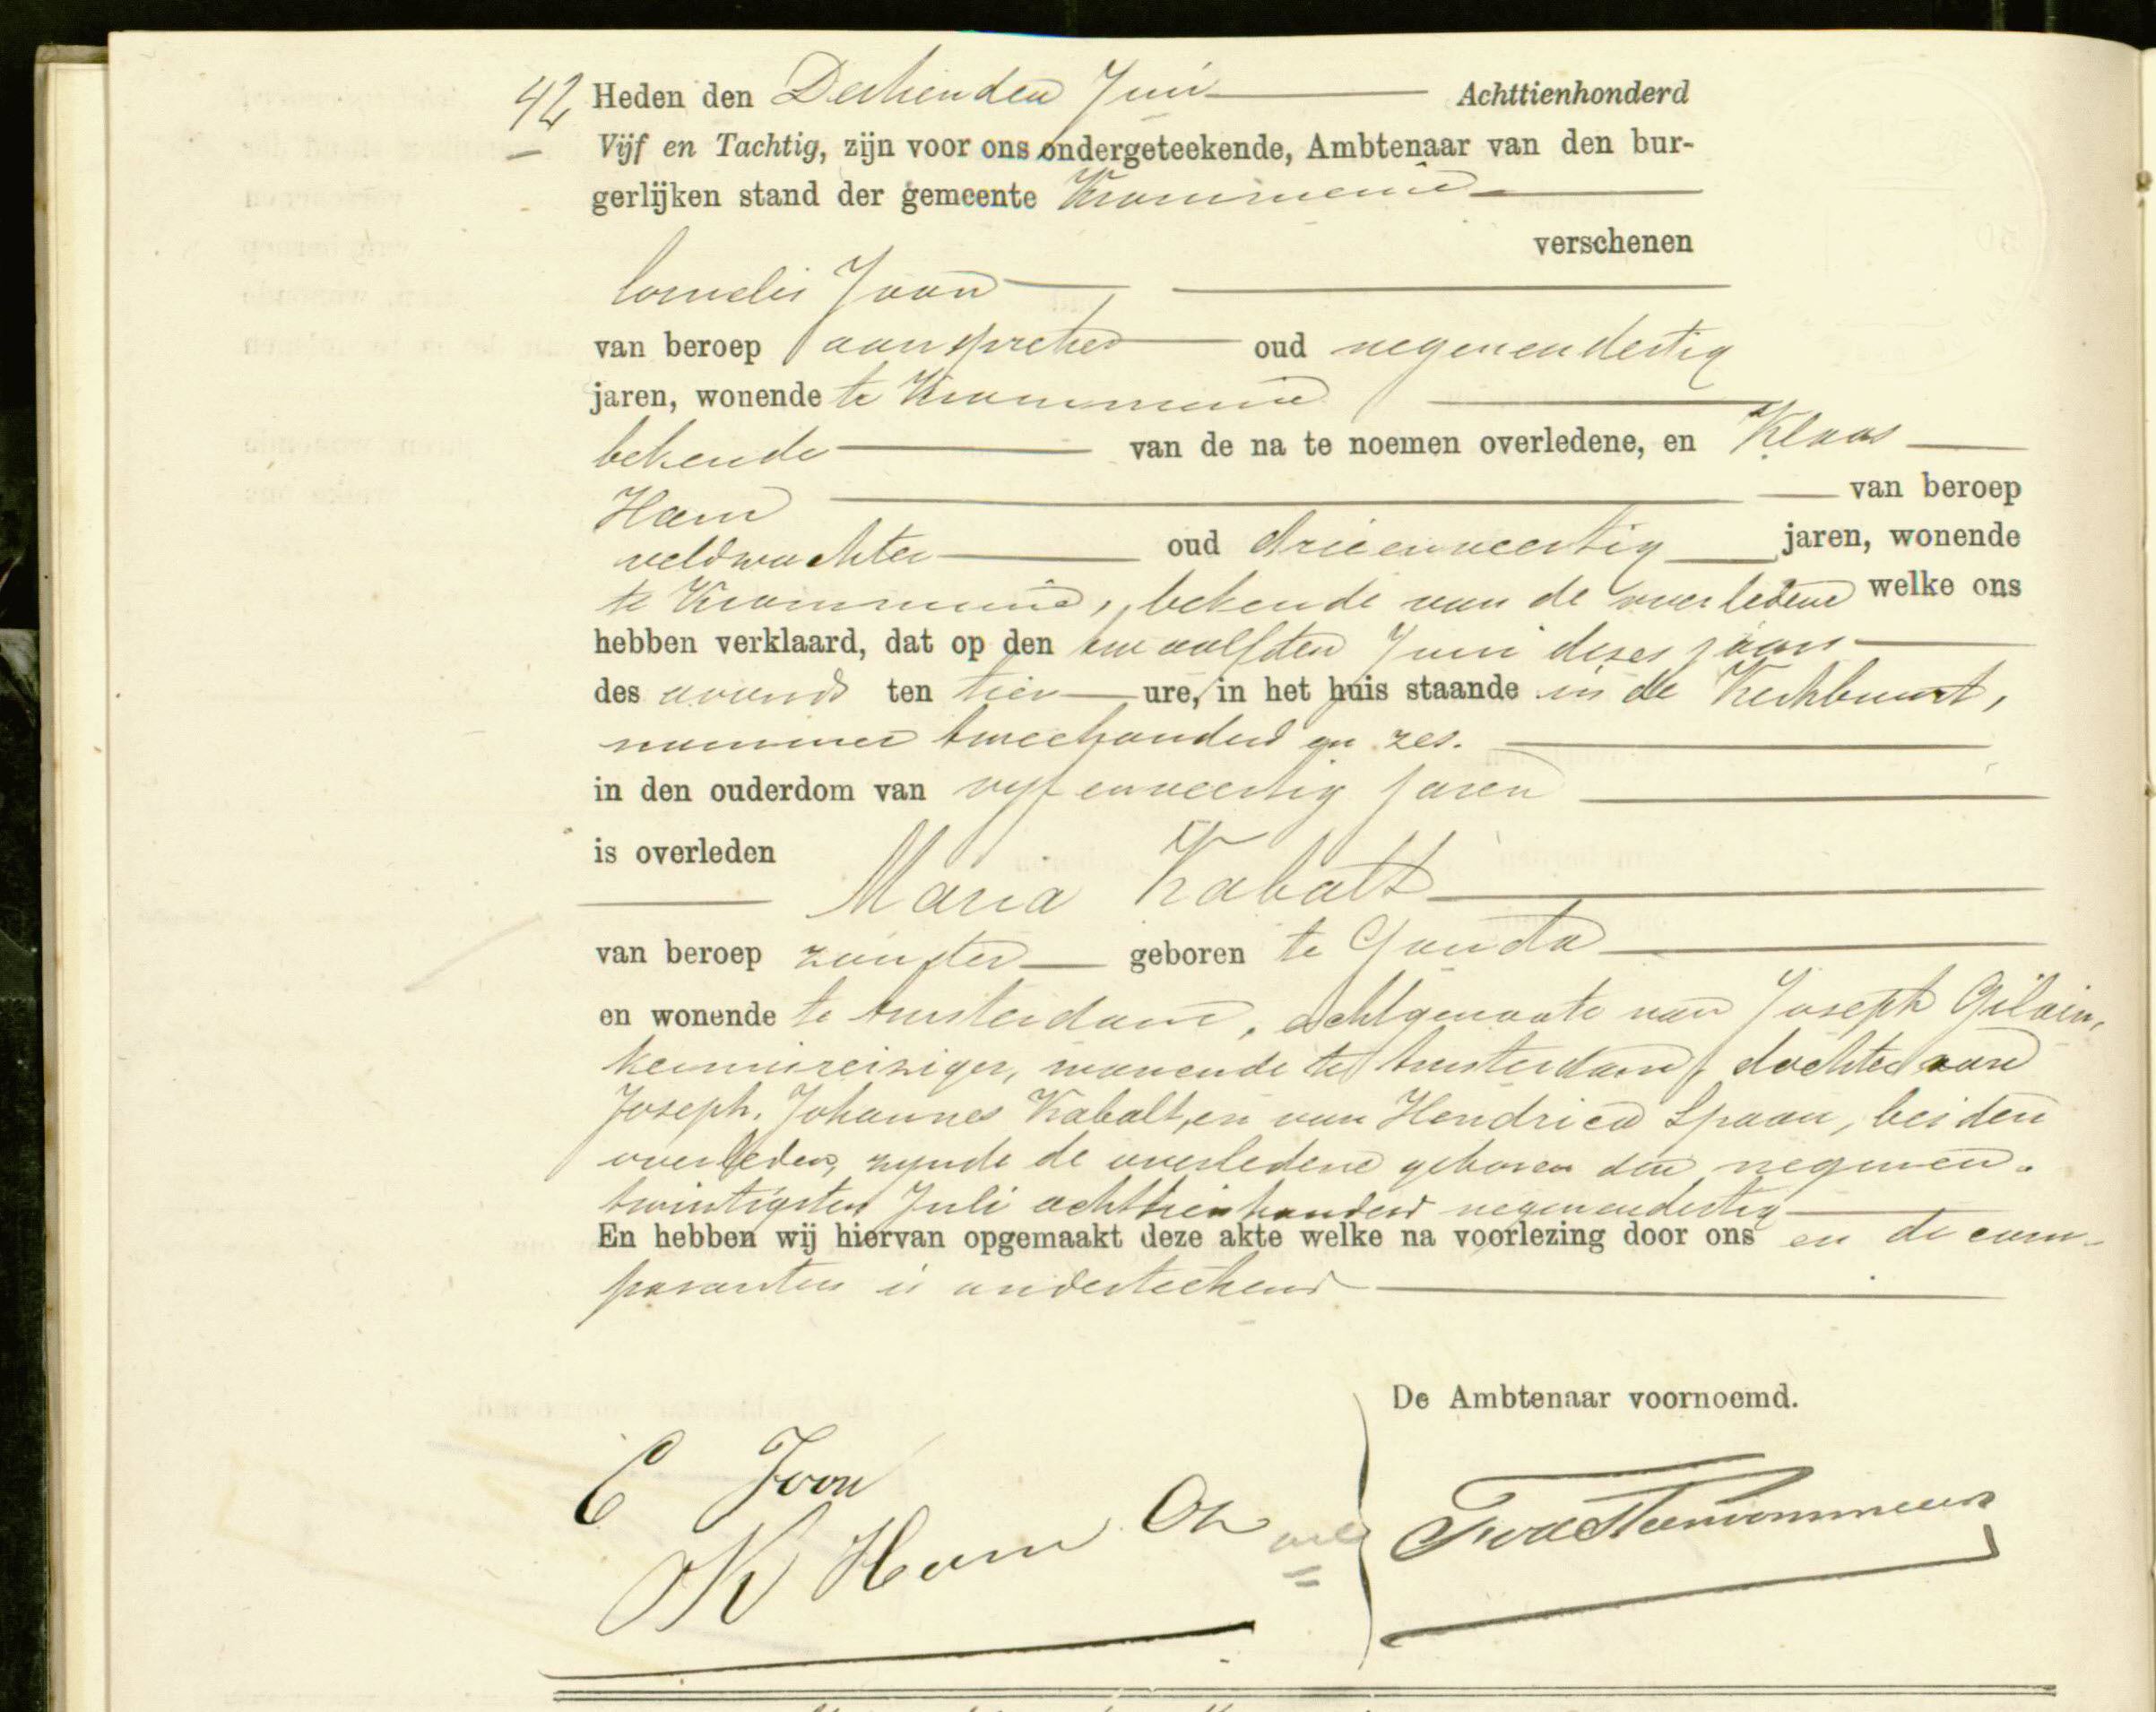 42 Heden den Dertienden Juni Achttienhonderd
Vijf en Tachtig, zijn voor ons ondergeteekende, Ambtenaar van den bur-
gerlijken stand der gemeente Krommenie
verschenen
Cornelis Joon
van beroep aanspreker oud negenendertig
jaren, wonende te Krommenie
bekende van de na te noemen overledene, en Klaas
Ham van beroep
veldwachter oud drieenveertig jaren, wonende
te Krommenie, bekende van de overledene welke ons
hebben verklaard, dat op den twaalfden Juni dezes jaars
des avonds ten tien ure, in het huis staande in de Kerkbuurt,
nummer tweehonderd en zes.
in den ouderdom van vijf en veertig jaren
is overleden
Maria Kabalt
van beroep zonder geboren te Gouda
en wonende te Amsterdam, echtgenoote van Joseph Gilain,
kermisreiziger, wonende te Amsterdam, dochter van
Joseph Johannes Kabalt, en van Hendrica Spaan, beiden
overleden, zynde de overledene geboren den negenen-
twintigsten Juli achttienhonderd negenendertig
En hebben wij hiervan opgemaakt deze akte welke na voorlezing door ons en de com-
paranten is onderteekend
De Ambtenaar voornoemd.
C Joon
K Ham